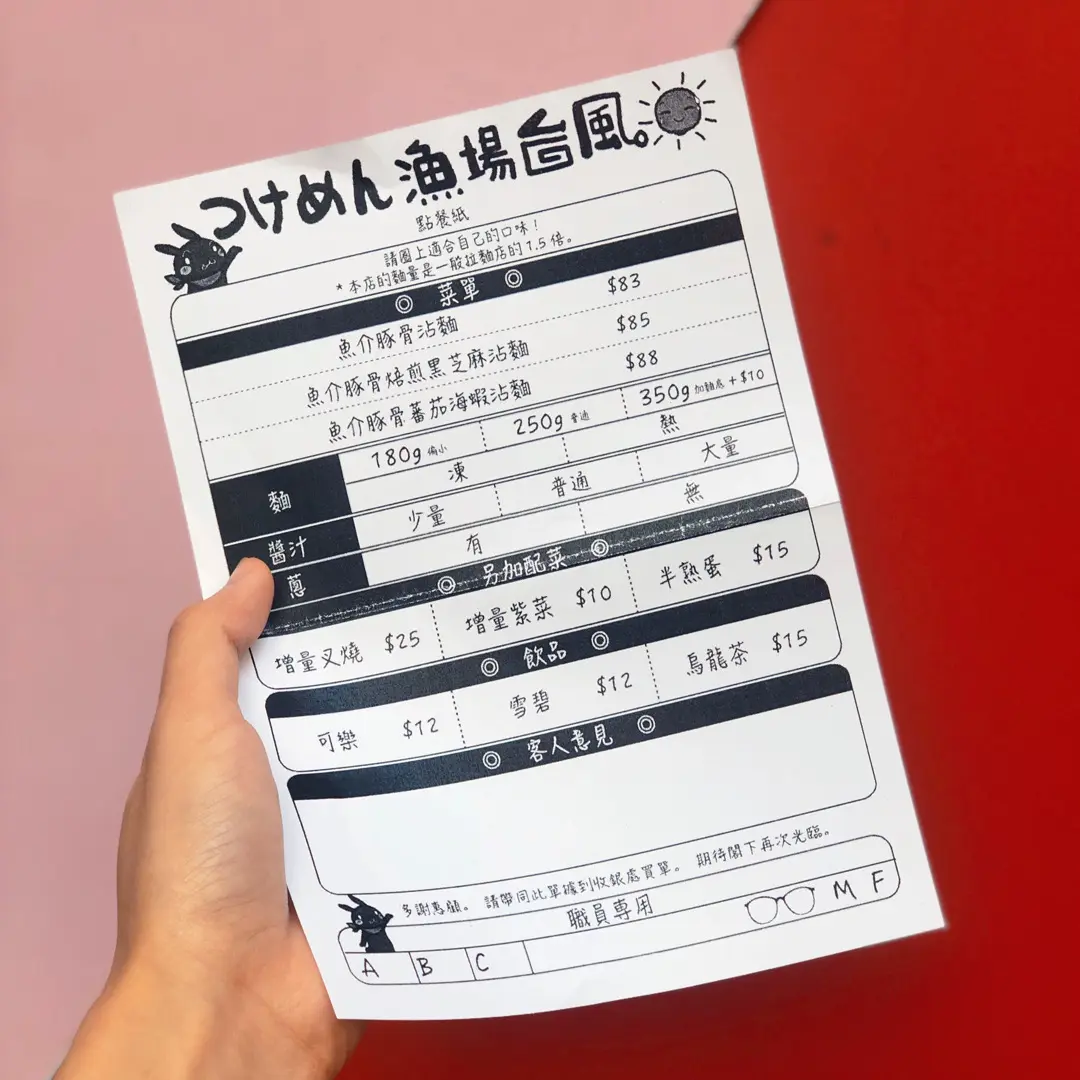 つけめん漁場台風。
點餐紙
請圈上適合自己的口味！
*本店的麵量是一般拉麵店的1.5倍。
◎ 菜單 ◎
魚介豚骨沾麵 $83
魚介豚骨焙煎黑芝麻沾麵 $85
魚介豚骨蕃茄海蝦沾麵 $88
麵 180g 偏小 250g 普通 350g 加麵底 +$10
凍 熱
醬汁 少量 普通 大量
蔥 有 無
◎ 另加配菜 ◎
增量叉燒 $25 增量紫菜 $10 半熟蛋 $15
◎ 飲品 ◎
可樂 $12 雪碧 $12 烏龍茶 $15
◎ 客人意見 ◎
多謝惠顧。 請帶同此單據到收銀處買單。 期待閣下再次光臨。
職員專用
M F
A B C